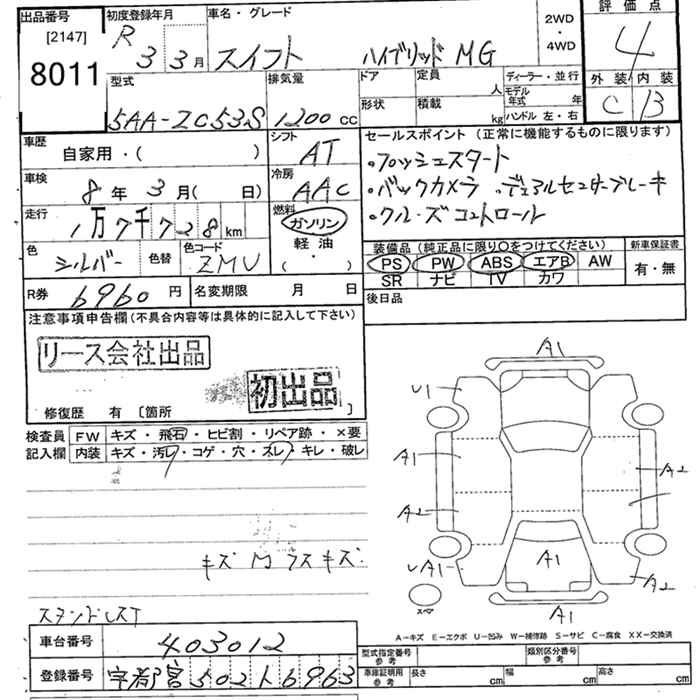 出品番号
[2147]
8011
初度登録年月
R 3 3月
車名・グレード
スイフト ハイブリッド MG
2WD
・
4WD
評価点
4
外装 内装
C B
型式
5AA-ZC53S
排気量
1200 CC
ドア
形状
定員 人
積載 kg
ディーラー・並行
モデル年式 年
ハンドル 左・右
車歴
自家用・( )
シフト
AT
車検
8年 3月( 日)
冷房
AAC
走行
1万7千728km
燃料
ガソリン
軽油
( ・ )
色
シルバー
色替
色コード
ZMU
R券
6960円
名変期限 月 日
セールスポイント(正常に機能するものに限ります)
・プッシュスタート
・バックカメラ ・デュアルセンサーブレーキ
・クルーズコントロール
装備品(純正品に限り○をつけてください)
PS PW ABS エアB AW
SR ナビ TV カワ
新車保証書
有・無
後日品
注意事項申告欄(不具合内容等は具体的に記入して下さい)
リース会社出品
初出品
修復歴 有 [箇所 ]
検査員
記入欄
FW キズ・飛石・ヒビ割・リペア跡・×要
内装 キズ・汚レ・コゲ・穴・スレ・キレ・破レ
キズ M ラスキズ
A1
U1
A1
A2
A2
A2
A1
A1
A2
スペア
A1
A-キズ E-エクボ U-凹み W-補修跡 S-サビ C-腐食 XX-交換済
車台番号
403012
登録番号
宇都宮 502 ト 6963
型式指定番号
参考
類別区分番号
参考
車庫証明用
参考
長さ cm
幅 cm
高さ cm